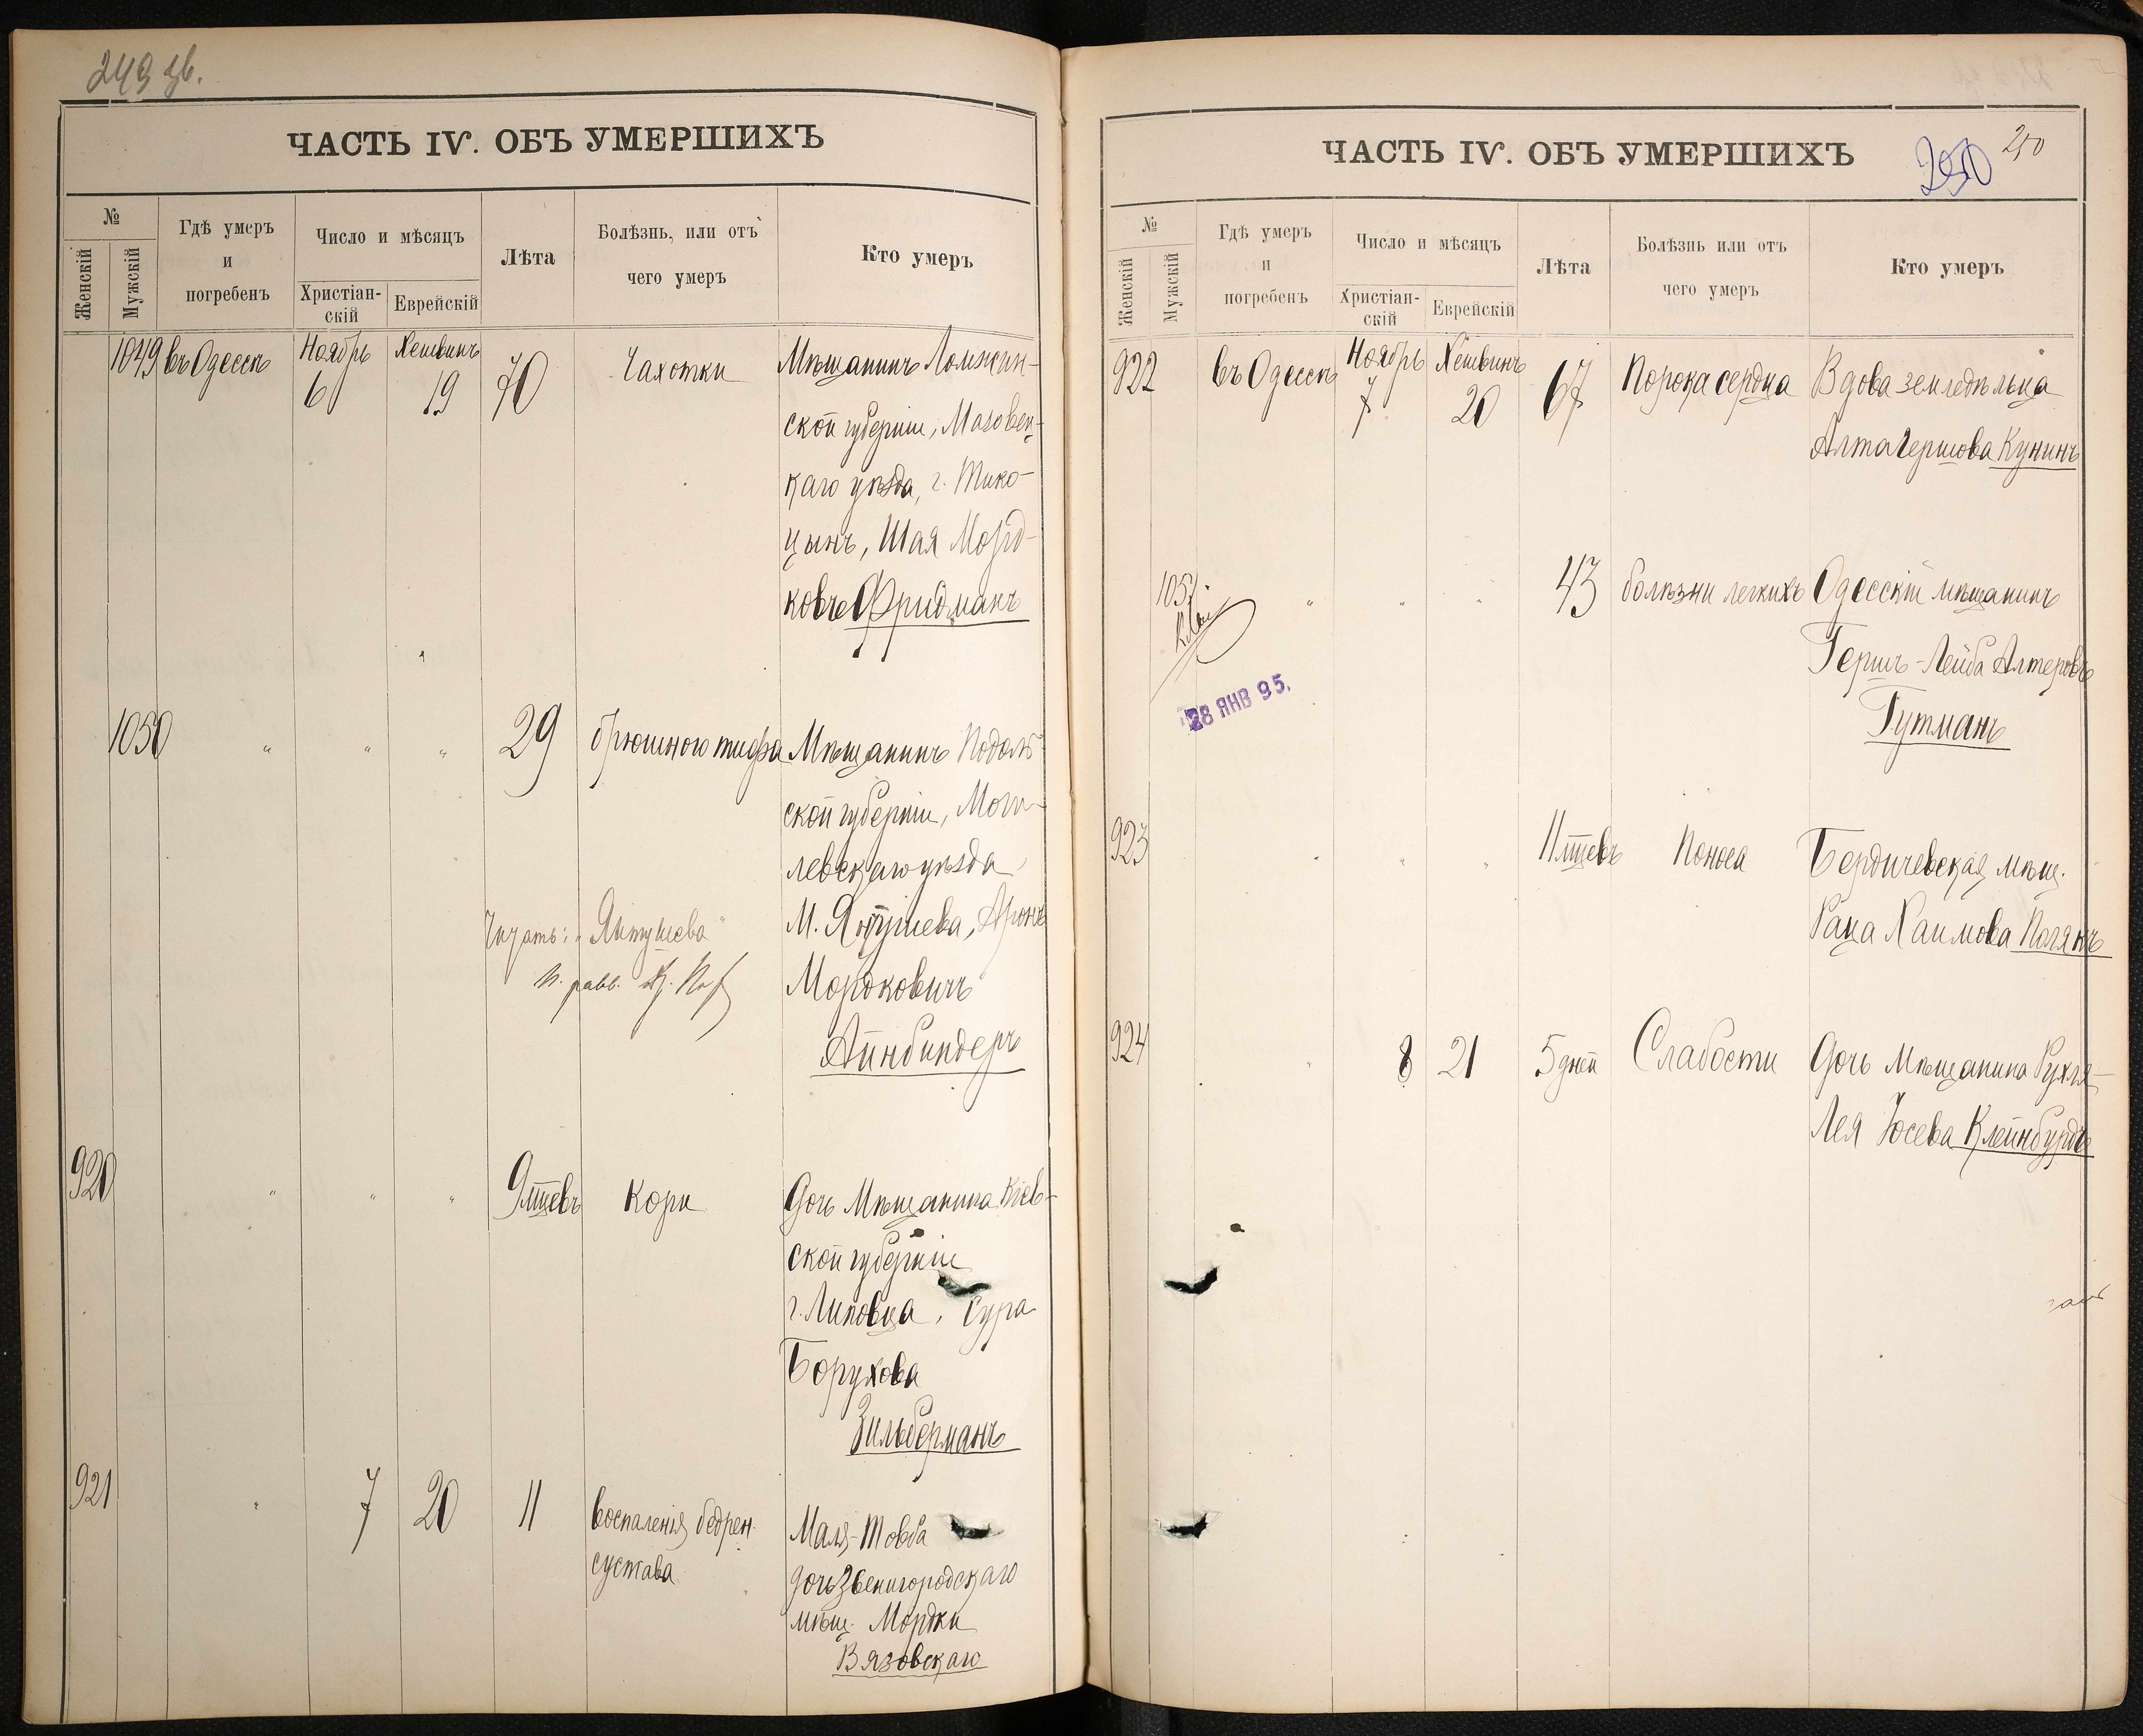 249 об.
ЧАСТЬ IV. ОБЪ УМЕРШИХЪ
№
Женскій
Мужскій
Гдѣ умеръ
и
погребенъ
Число и мѣсяцъ
Христіан-
скій
Еврейскій
Лѣта
Болѣзнь, или отъ
чего умеръ
Кто умеръ
1049 въ Одессѣ Ноябрь 6 Хешвинъ 19 70 Чахотки Мѣщанинъ Ломжин-
ской губерніи, Мазовец-
каго уѣзда, г. Тико-
цынъ, Шая Морд-
ковъ Фридманъ
1050 " " " 29 брюшного тифа Мѣщанинъ Подоль-
ской губерніи, Моги-
левскаго уѣзда,
М. Ялтушева, Аронъ
Читать: "Ялтушева"
Мордковичъ
Айнбиндеръ
920 " " " 9 мѣсцевъ Кори Дочь Мѣщанина Кіев-
ской губерніи
г. Липовца, Сура
Борухова
Зильберманъ
921 " 7 20 11 воспаленія бедрен.
сустава
Маля-Товба
дочь Звенигородскаго
мѣщ. Мордки
Вязовскаго
ЧАСТЬ IV. ОБЪ УМЕРШИХЪ
250 250
№
Женскій
Мужскій
Гдѣ умеръ
и
погребенъ
Число и мѣсяцъ
Христіан-
скій
Еврейскій
Лѣта
Болѣзнь или отъ
чего умеръ
Кто умеръ
922 въ Одессѣ Ноябрь 7 Хешвинъ 20 67 Порока сердца Вдова земледѣльца
Алта Гершова Кунинъ
1051 " " " 43 болѣзни легкихъ Одесскій мѣщанинъ
Гершъ-Лейба Алтеровъ
Гутманъ
28 ЯНВ 95.
923 " " " 11 мѣсцевъ Поноса Бердичевская мѣщ.
Раца Хаимова Полякъ
924 " 8 21 5 дней Слабости Дочь Мѣщанина Рухля-
Лея Іосева Клейнбурдъ